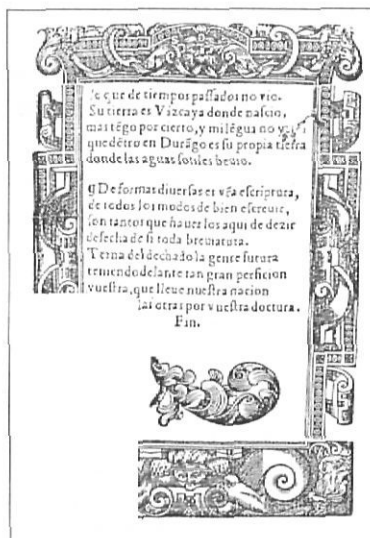 se que de tiempos passados no vio.
Su tierra es Vizcaya donde nascio,
mas tẽgo por cierto, y mi lẽgua no
que dẽtro en Durãgo es su propia tierra
donde las aguas sotiles beuio.
q̃ De formas diuersas es vr̃a escriptura,
de todos los modos de bien escreuir,
son tantos que hauer los aqui de dezir
desecha de si toda breuiatura.
Terna del dechado la gente futura
teniendo delante tan gran perficion
vuestra, que lleue nuestra nacion
las otras por vuestra doctura.
Fin.